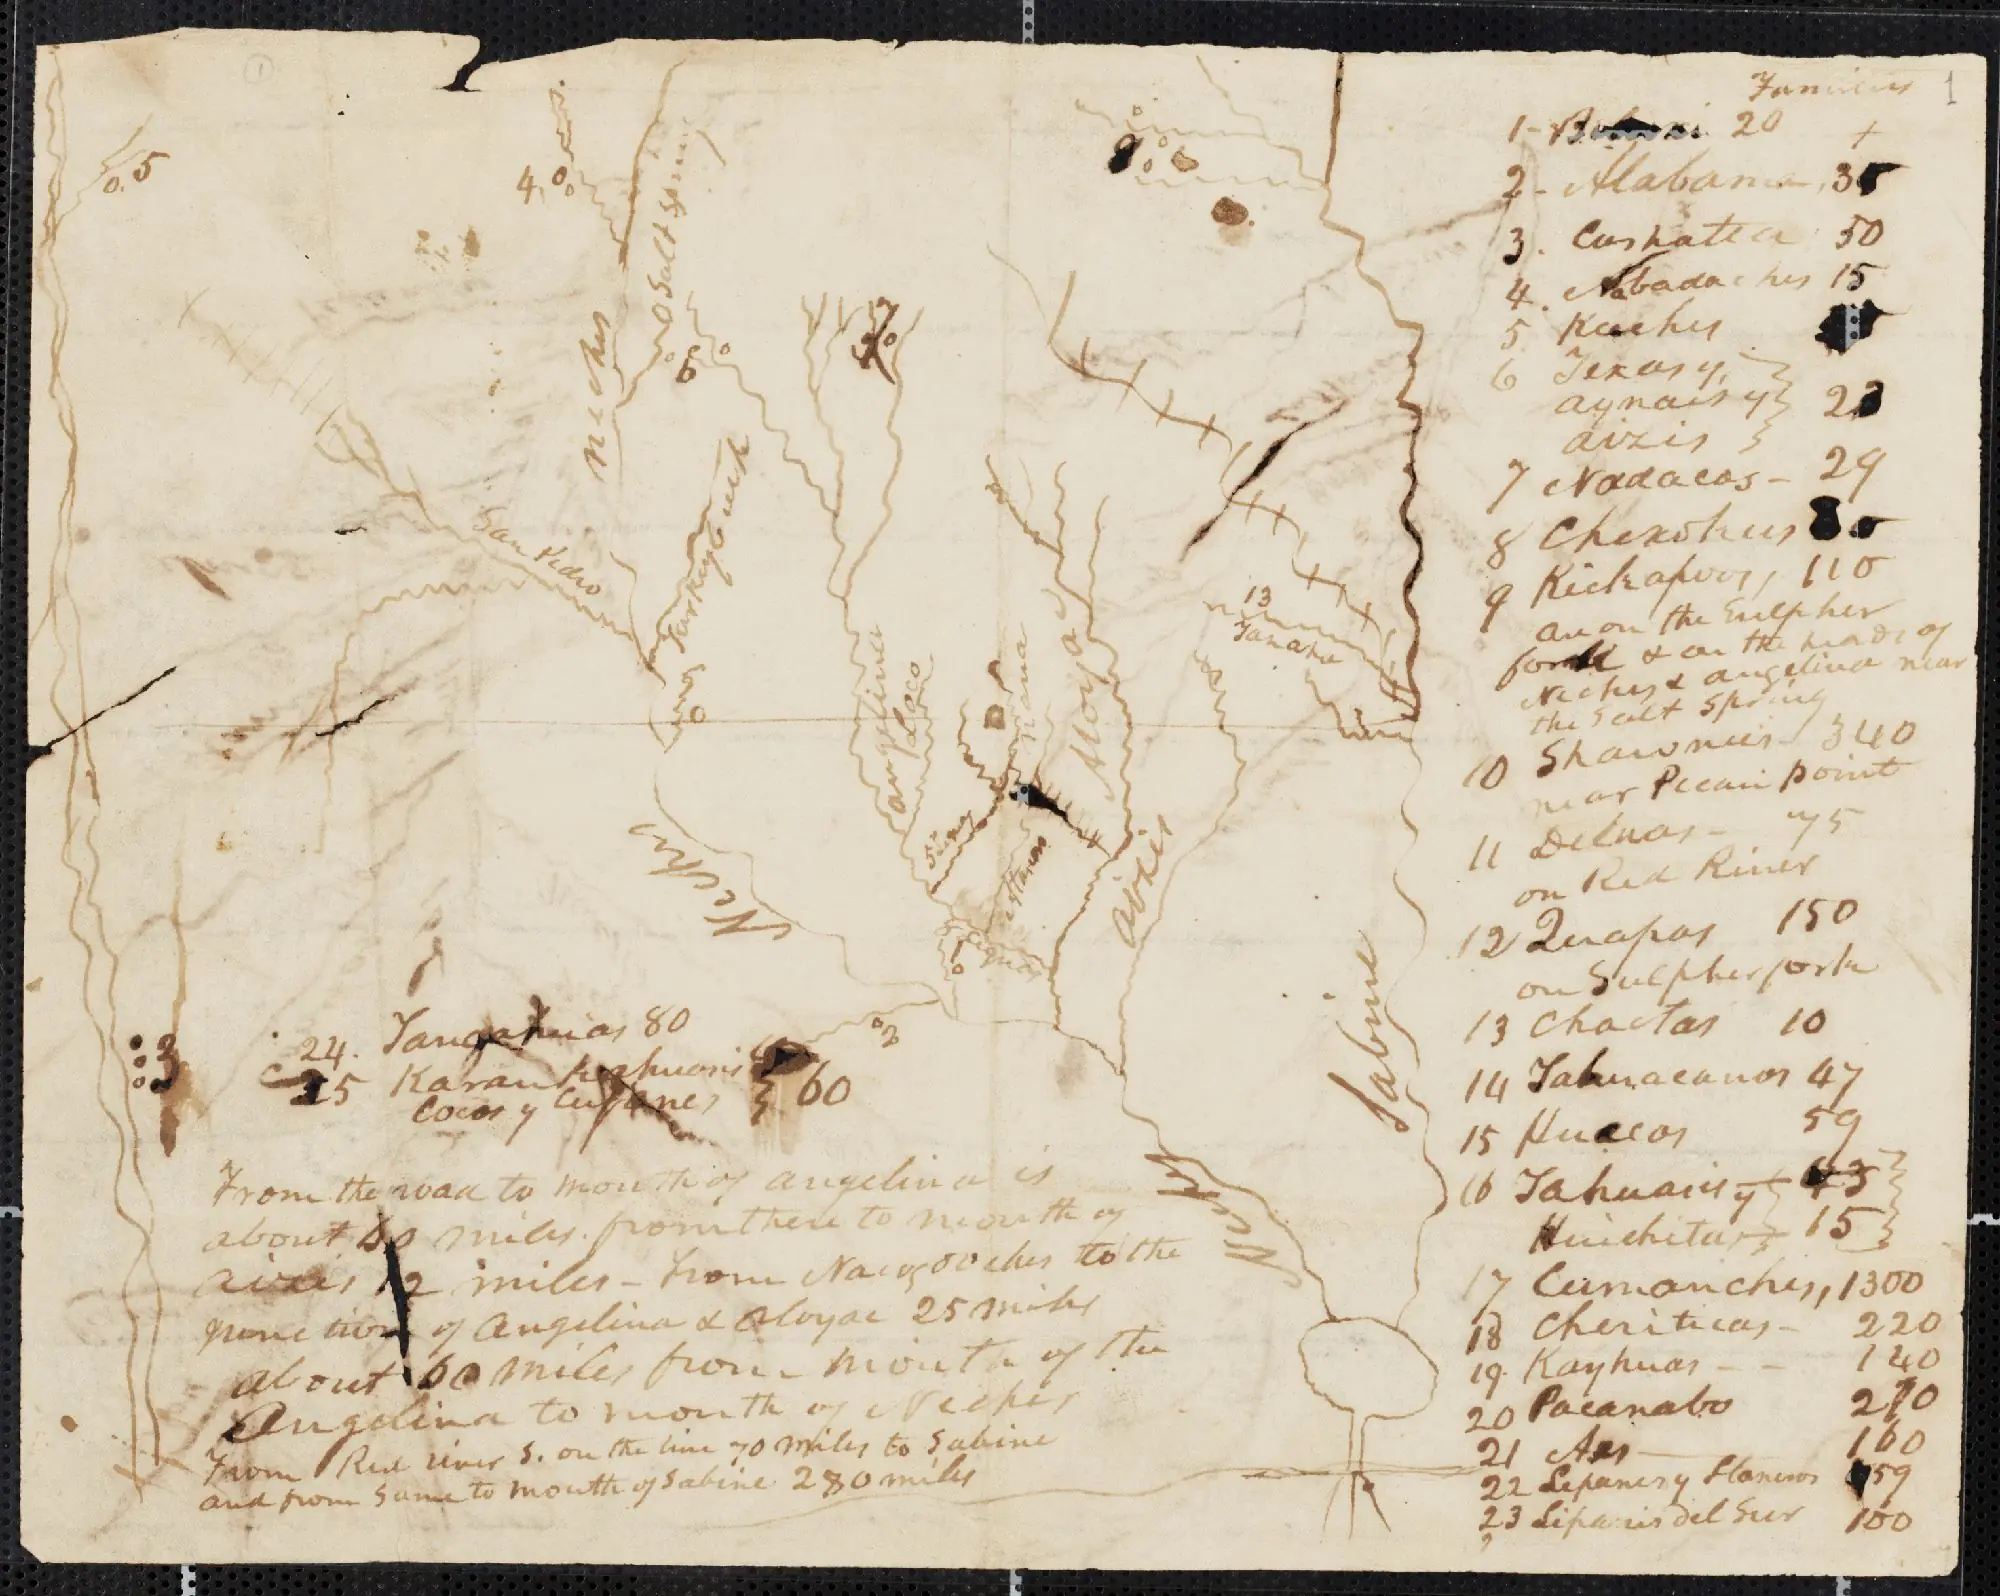 1
Families
1
1- 20
2- Alabama, 35
3. Cushatta 50
4. Nabadaches 15
5 Keechis
6 Texas y,
aynais y 2
aizis
7 Nadacos - 29
8 Cherokees 80
9 Kickapoos, 110
are on the Sulpher
fork & on the heads of
Neches & angelina near
the salt spring
10 Shawnees - 340
near Pecan point
11 Deluas - 75
on Red River
12 Quapas 150
on Sulpher fork
13 Choctas 10
14 Tahuacanos 47
15 Huecos 59
16 Tahuais y 43
Huichitas 15
17 Cumanches, 1300
18 Cheriticas - 220
19. Kayhuas - - 140
20 Pacanabo 270
21 Aes 160
22 Lipanes y Llaneros 59
23 Lipanis del Sur 100
24. 80
25 60
Cocos y
5
4
Salt Spring
Neches
6
7
San Pedro
Angelina
Loco
nana
Aloyac
aizis
13
Tanaha
Neches
1
2
3
Sabine
Neches
From the road to mouth of angelina is
about 60 miles. from there to mouth of
aizis 12 miles - From Nacogdoches to the
junction of Angelina & Aloyac 25 miles
about 60 miles from mouth of the
Angelina to mouth of Neches
From Red river S. on the line 70 miles to Sabine
and from same to mouth of Sabine 280 miles